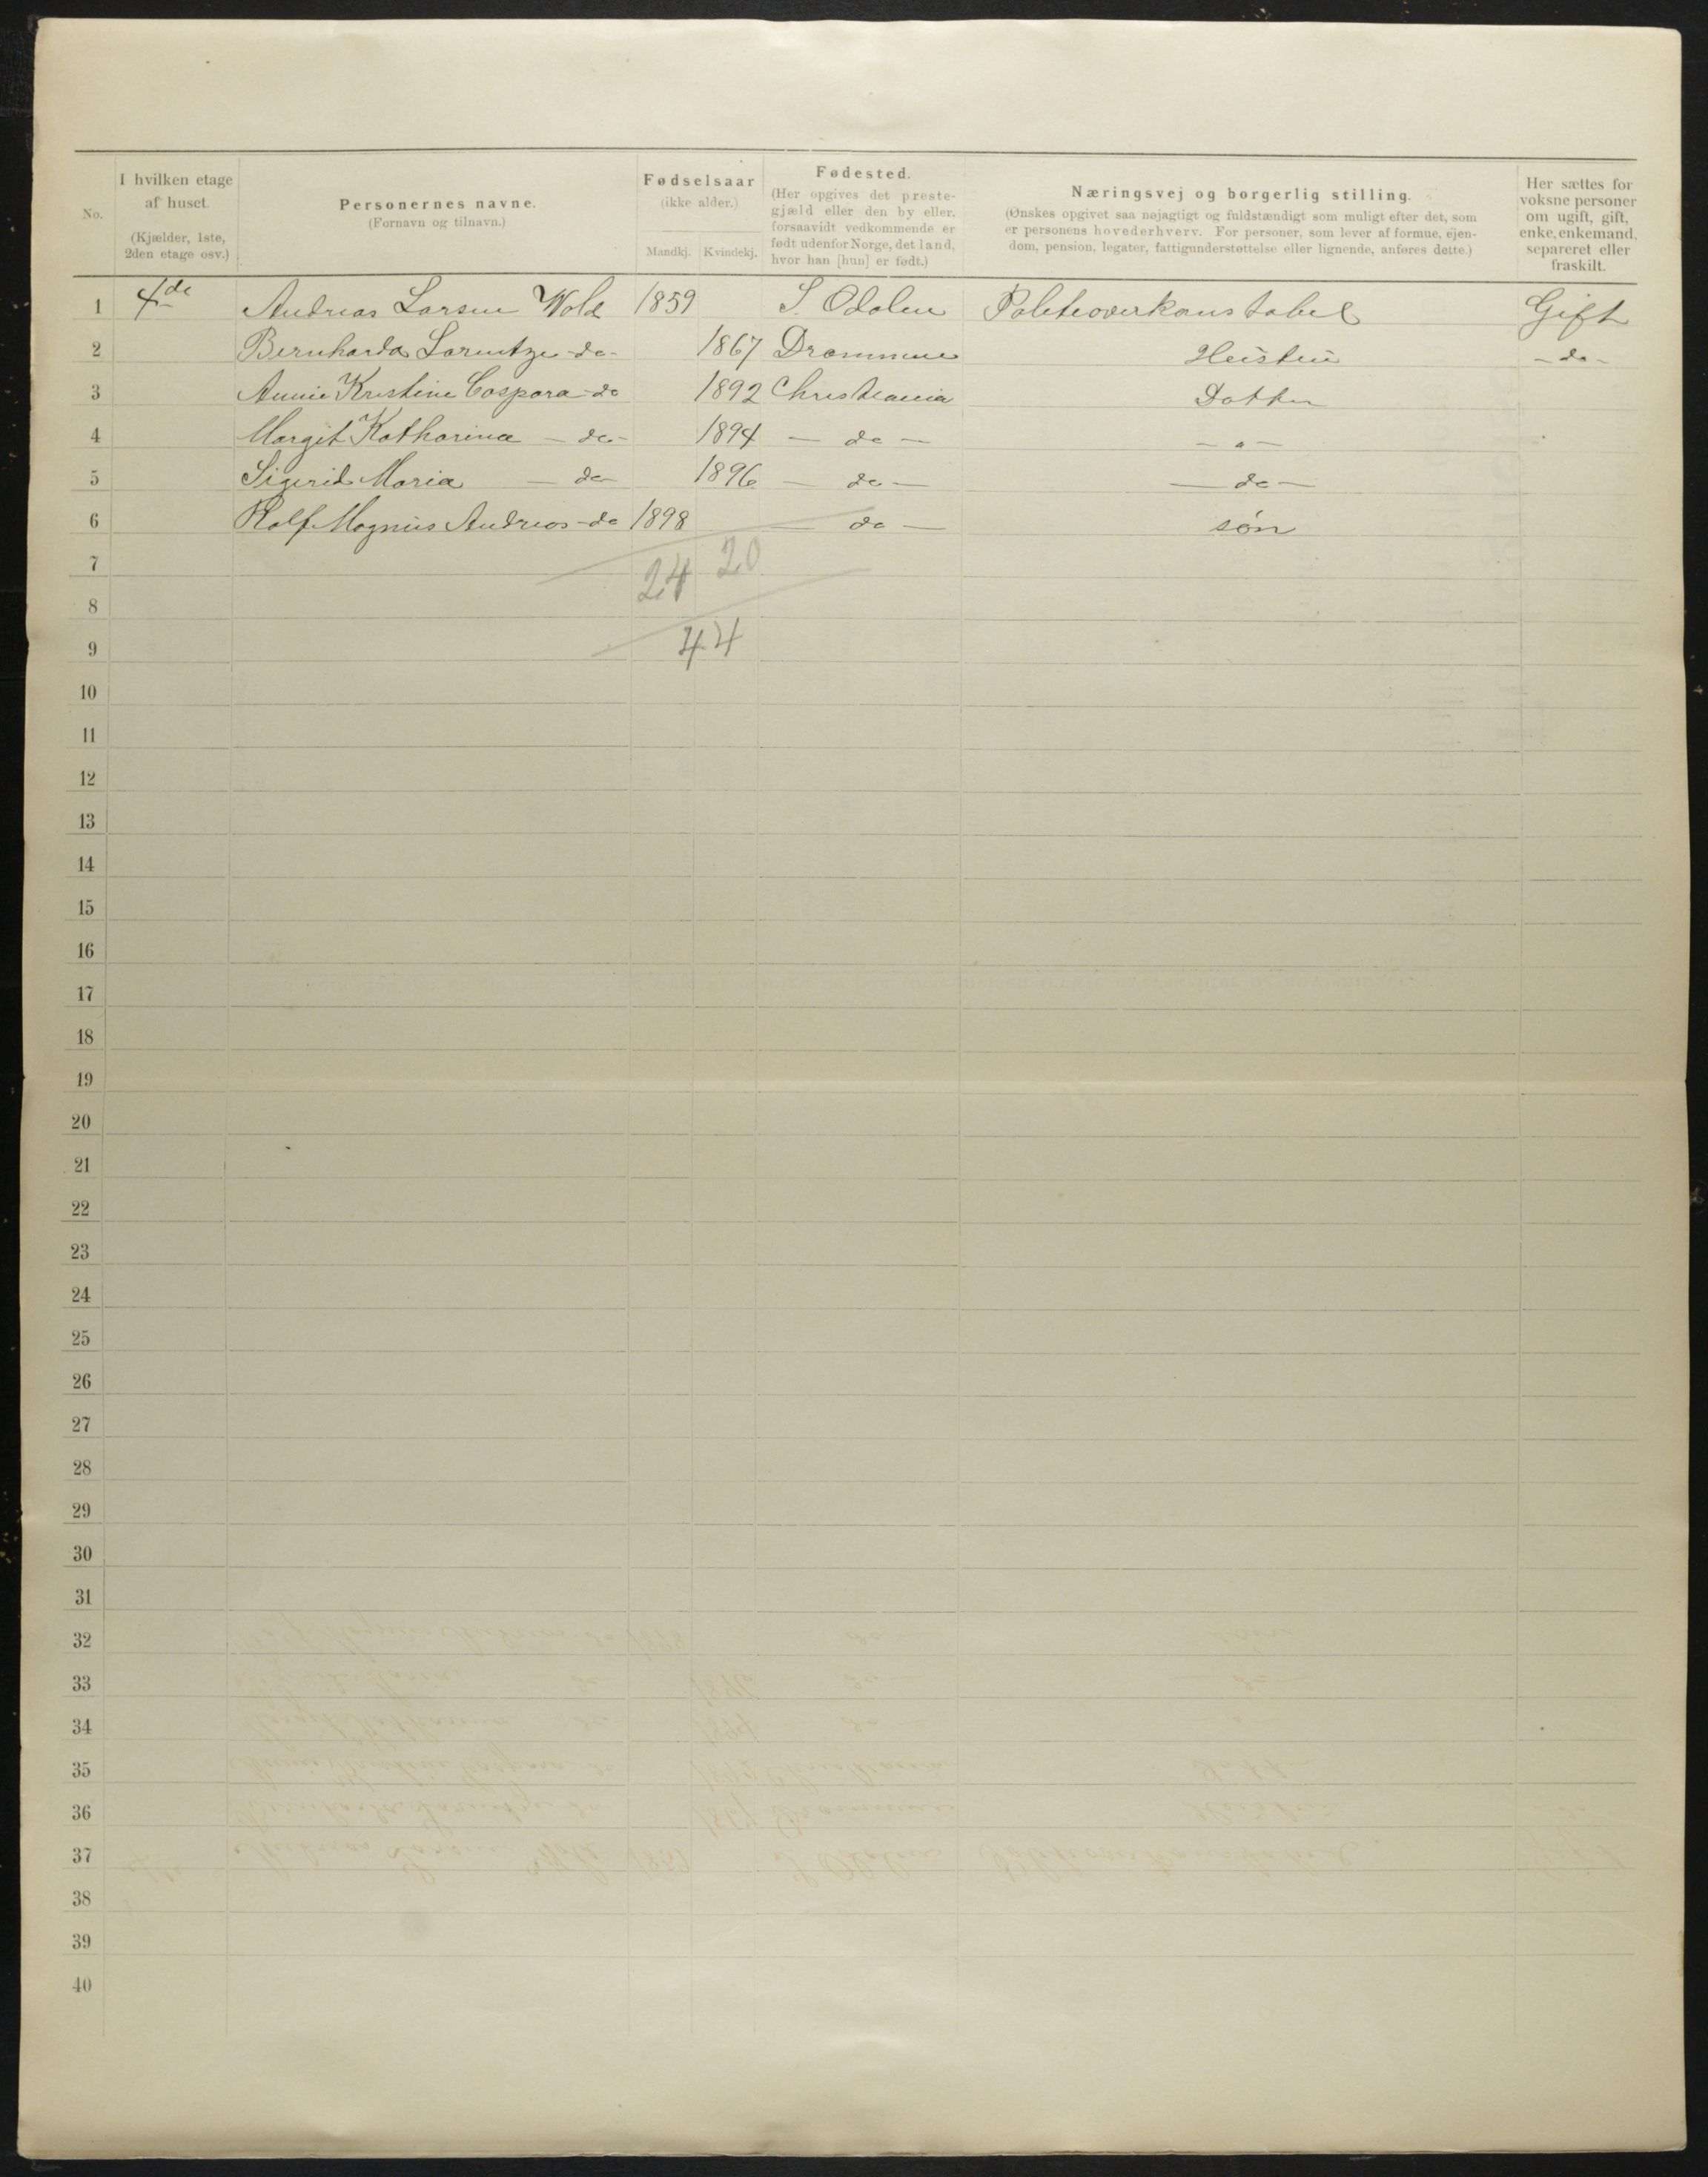 No.
I hvilken etage af huset.
(Kjælder, 1ste, 2den etage osv.)
Personernes navne.
(Fornavn og tilnavn.)
Fødselsaar
(ikke alder.)
Mandkj. Kvindekj.
Fødested.
(Her opgives det preste-
gjæld eller den by eller,
forsaavidt vedkommende er
født udenfor Norge, det land,
hvor han [hun] er født.)
Næringsvej og borgerlig stilling.
(Ønskes opgivet saa nøjagtigt og fuldstændigt som muligt efter det, som
er personens hovederhverv. For personer, som lever af formue, ejen-
dom, pension, legater, fattigunderstøttelse eller lignende, anføres dette.)
Her sættes for
voksne personer
om ugift, gift,
enke, enkemand,
separeret eller
fraskilt.
1 4de Andreas Larsen Wold 1859 S. Odalen Politioverkonstabel Gift
2 Bernharda Lorentze -do- 1867 Drammen Hustru -do-
3 Annie Kristine Caspara -do 1892 Christiania Datter
4 Margit Katharina - do - 1894 - do - - " -
5 Sigrid Maria - do 1896 - do - - do -
6 Rolf Magnus Andreas -do 1898 - do - søn
7 24 20
8
9 44
10
11
12
13
14
15
16
17
18
19
20
21
22
23
24
25
26
27
28
29
30
31
32
33
34
35
36
37
38
39
40